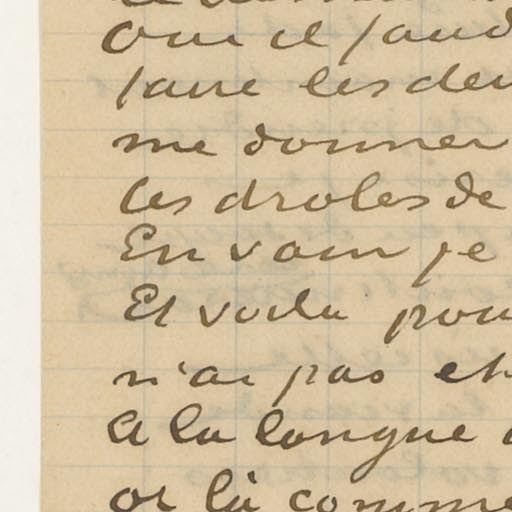 Oui il faud
faire les deu
me donner
les droles de
En vain je
Et voila pou
n'ai pas et
A la longue
or là comme